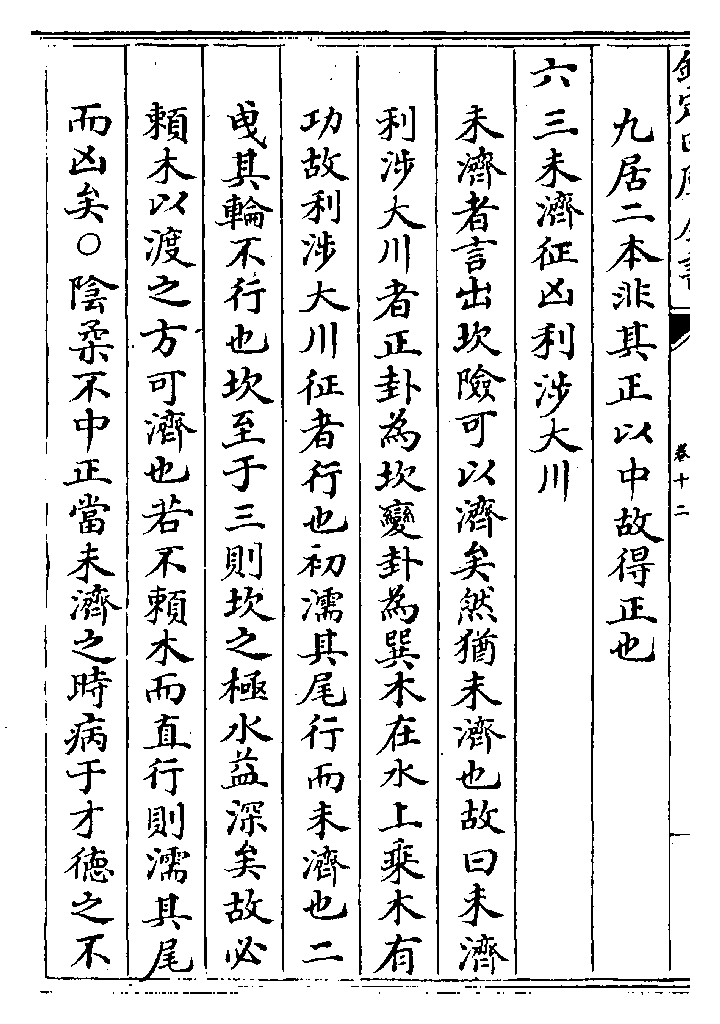 欽定四庫全書
卷十二
九居二本非其正以中故得正也
六三未濟征凶利涉大川
未濟者言出坎險可以濟矣然猶未濟也故曰未濟
利涉大川者正卦為坎變卦為巽木在水上乘木有
功故利涉大川征者行也初濡其尾行而未濟也二
曵其輪不行也坎至于三則坎之極水益深矣故必
賴木以渡之方可濟也若不賴木而直行則濡其尾
而凶矣○陰柔不中正當未濟之時病于才德之不